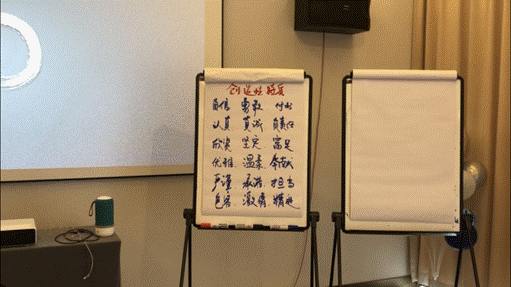 创造性特质
自信 勇敢 付出
认真 真诚 负责任
欣赏 坚定 富足
优雅 温柔 奉献
严谨 承诺 担当
包容 激情